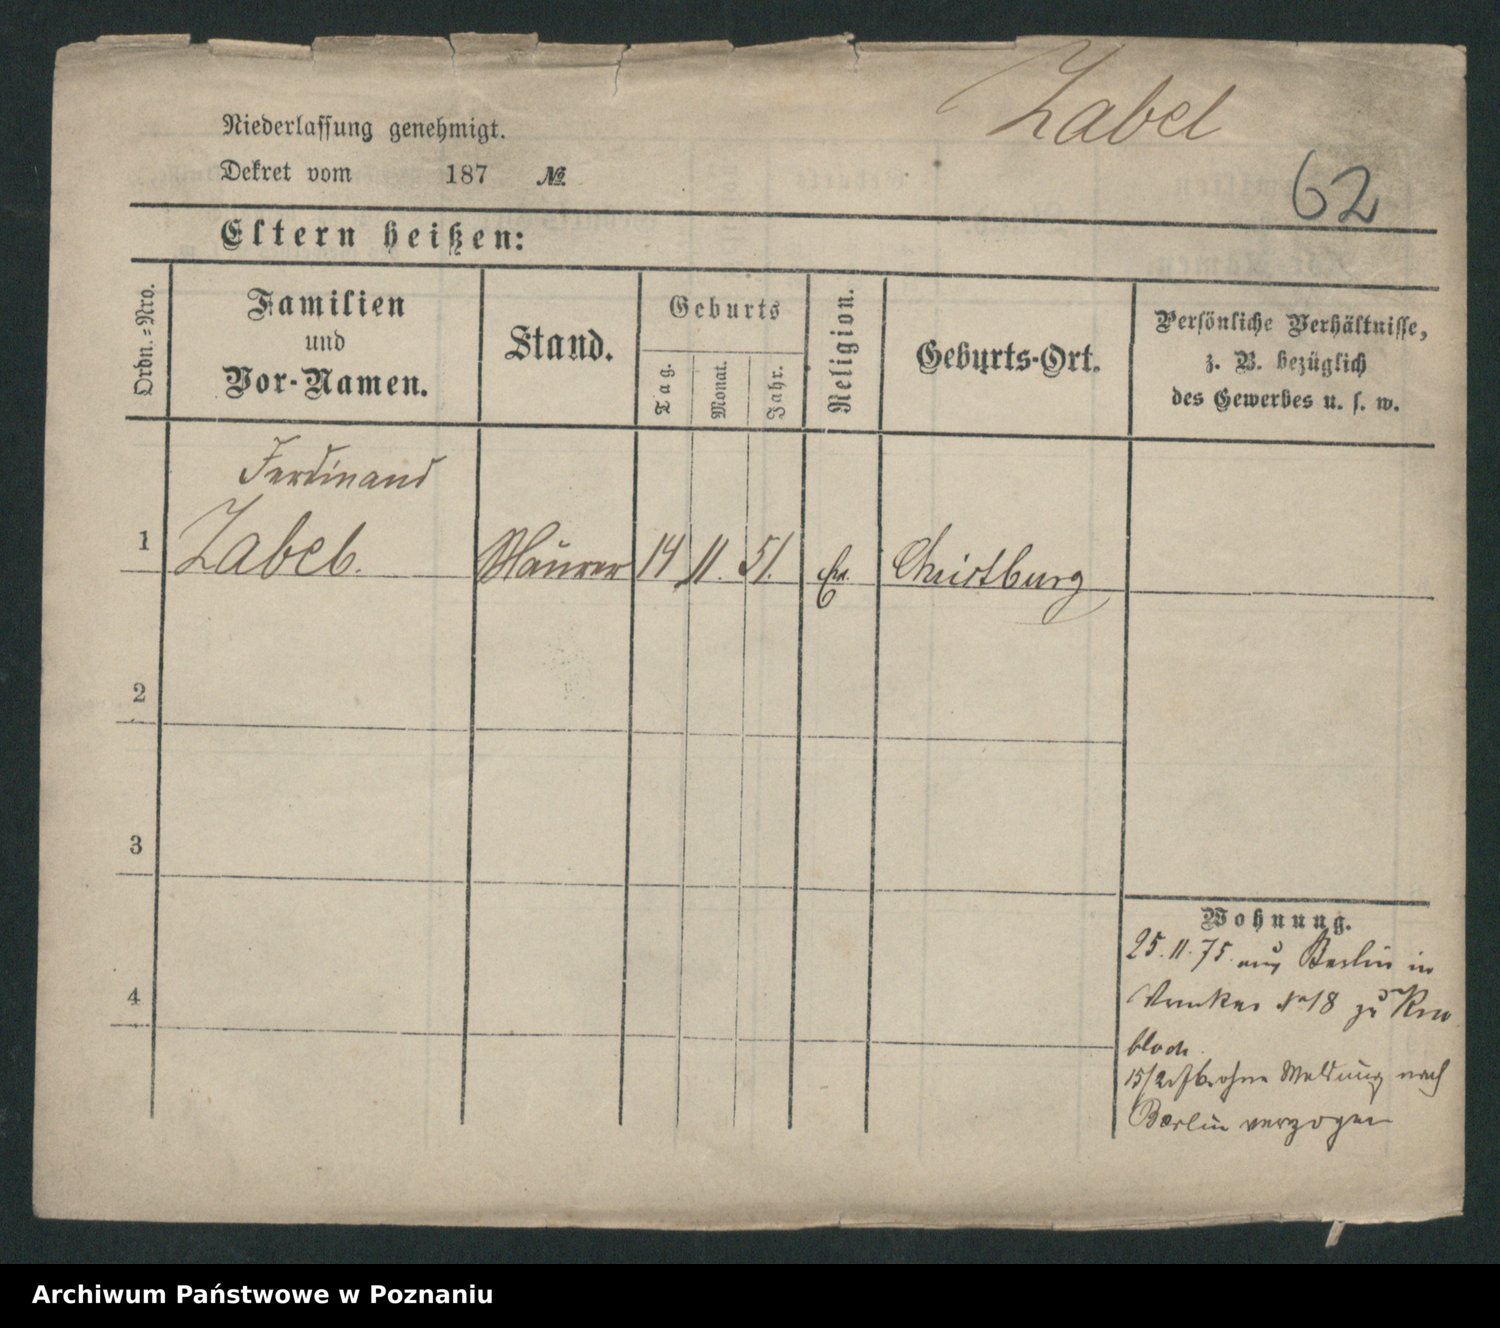 Zabel
62
Niederlassung genehmigt.
Dekret vom 187 №
Eltern heißen:
Ordn.=Nro.
Familien
und
Vor-Namen.
Stand.
Geburts
Tag.
Monat.
Jahr.
Religion.
Geburts-Ort.
Persönliche Verhältnisse,
z. B. bezüglich
des Gewerbes u. s. w.
Ferdinand
1 Zabel. Maurer 14 11. 51. Ev. Christburg
2
3
4
Wohnung.
25. 11. 75. aus Berlin in
No 18 zu
15/2 ohne Meldung nach
Berlin verzogen
Archiwum Państwowe w Poznaniu